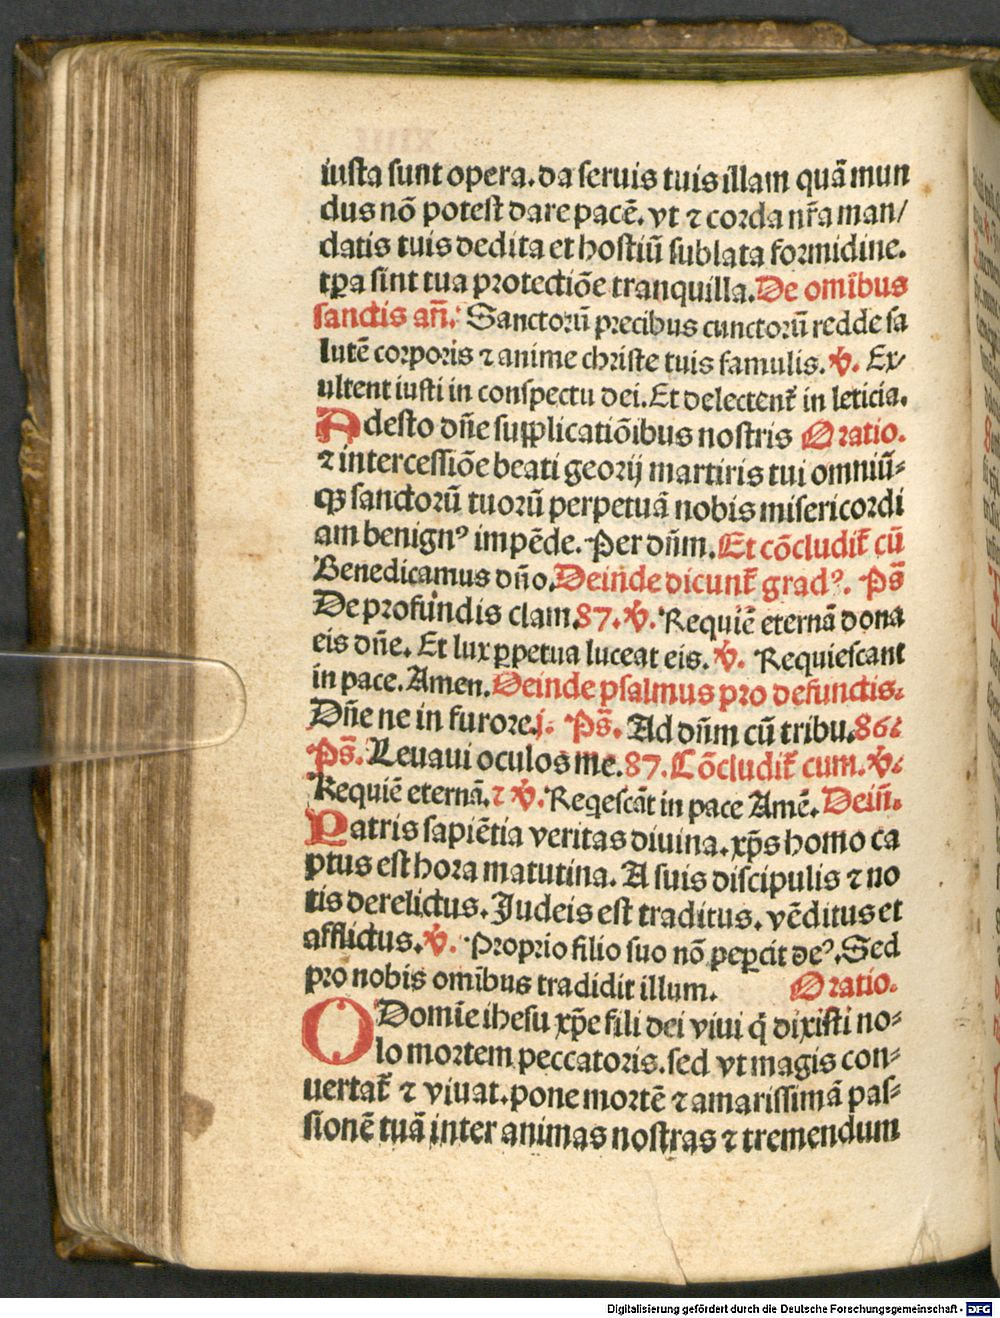 iusta sunt opera. da seruis tuis illam quā mun
dus nō potest dare pacē. vt ⁊ corda nr̄a man/
datis tuis dedita et hostiū sublata formidine.
tꝑa sint tua protectiōe tranquilla. De om̄ibus
sanctis an̄. Sanctorū precibus cunctorū redde sa
lutē corporis ⁊ anime christe tuis famulis. ℣. Ex/
ultent iusti in conspectu dei. Et delectent᷑ in leticia.
Adesto dn̄e supplicatiōibus nostris Oratio.
⁊ intercessiōe beati georij martiris tui omniū⸗
qꝫ sanctorū tuorū perpetuā nobis misericordi
am benignꝰ impēde. Per dn̄m. Et cōcludit᷑ cū
Benedicamus dn̄o. Deinde dicunt᷑ gradꝰ. Ps̄
De profundis clam. 87. ℣. Requiē eternā dona
eis dn̄e. Et lux ꝑpetua luceat eis. ℣. Requiescant
in pace. Amen. Deinde psalmus pro defunctis.
Dn̄e ne in furore. j. Ps̄. Ad dn̄m cū tribu. 86.
Ps̄. Leuaui oculos me. 87. Cōcludit᷑ cum. ℣.
Requiē eternā. ⁊ ℣. Reqescāt in pace Amē. Dein̄.
Patris sapiētia veritas diuina. xp̄s homo ca
ptus est hora matutina. A suis discipulis ⁊ no
tis derelictus. Judeis est traditus. vēditus et
afflictus. ℣. Proprio filio suo nō peꝑcit deꝰ. Sed
pro nobis om̄ibus tradidit illum. Oratio.
O Domīe ihesu xp̄e fili dei viui q̄ dixisti no⸗
lo mortem peccatoris. sed vt magis con⸗
uertat᷑ ⁊ viuat. pone mortē ⁊ amarissimā pas⸗
sionē tuā inter animas nostras ⁊ tremendum
Digitalisierung gefördert durch die Deutsche Forschungsgemeinschaft - DFG